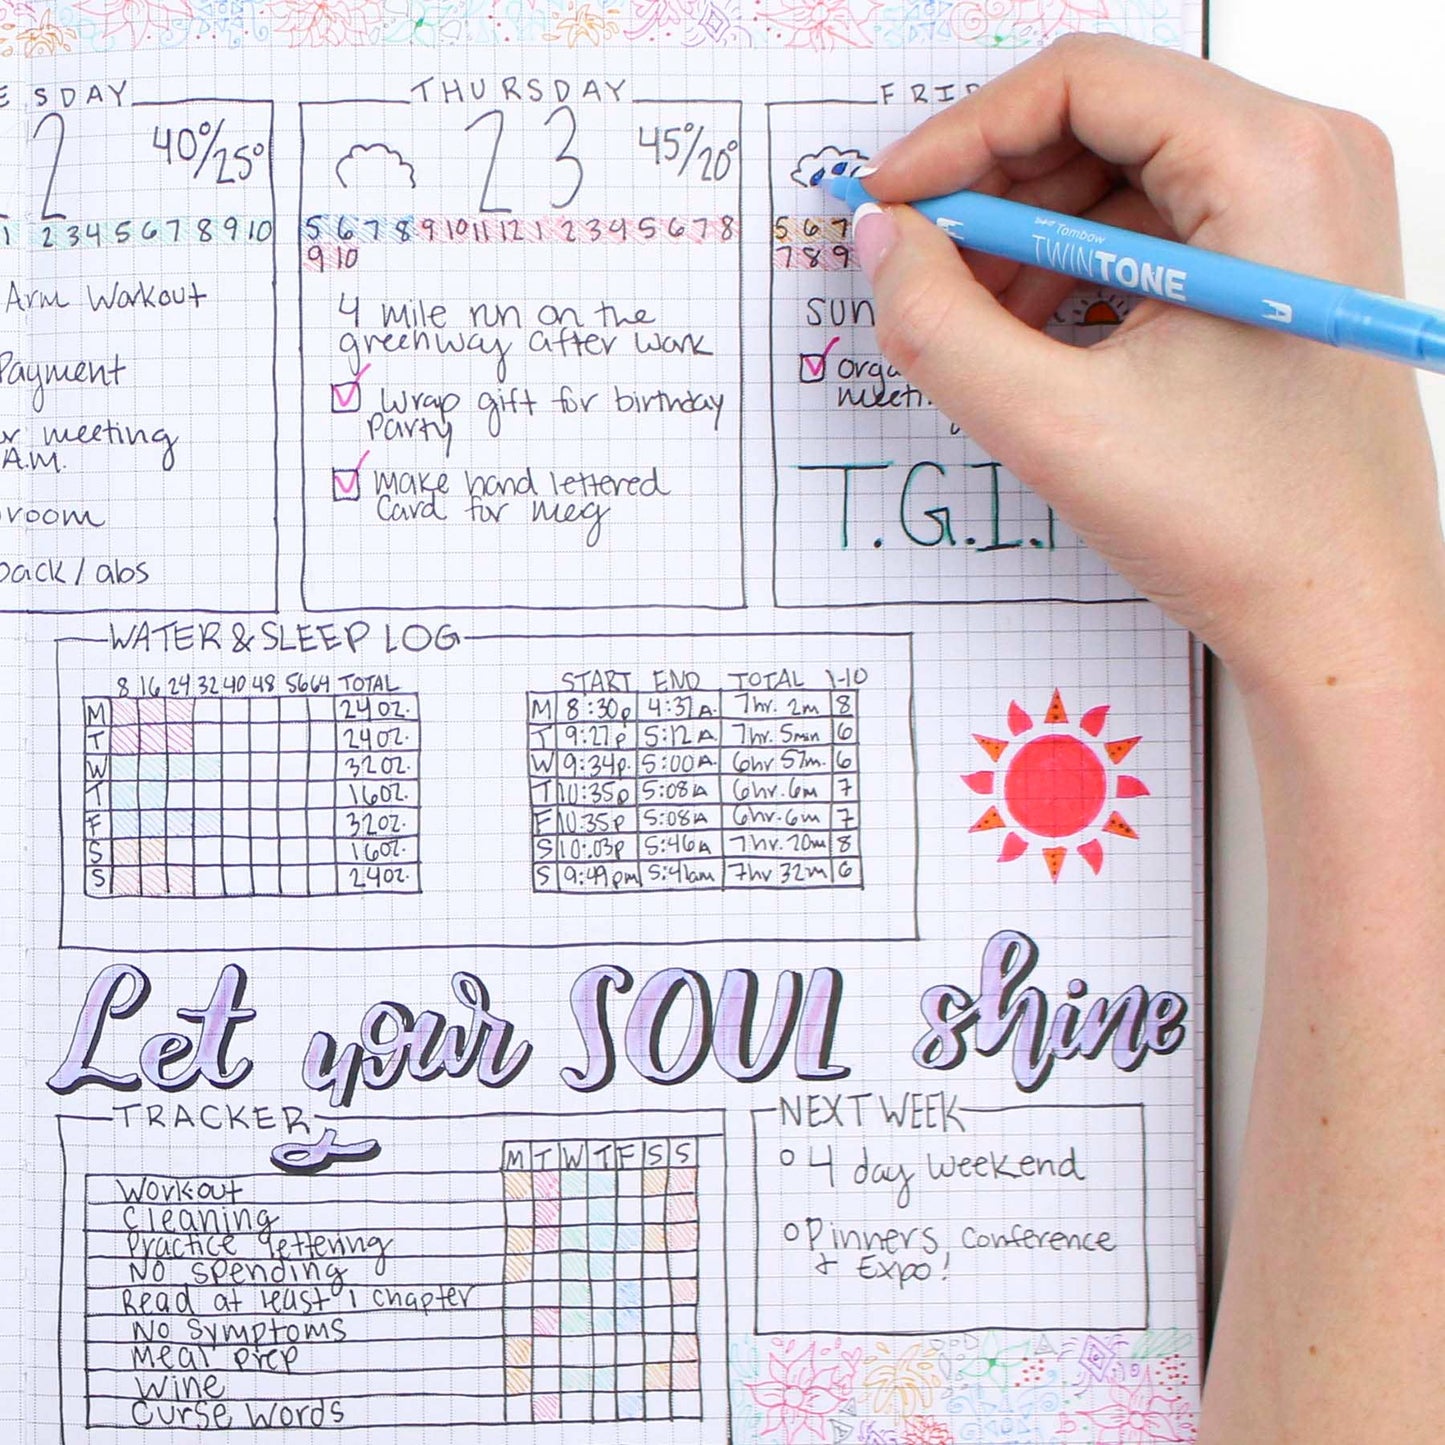 ESDAY
2 40°/25°
1 2 3 4 5 6 7 8 9 10
Arm Workout
Payment
meeting
A.M.
room
back / abs
THURSDAY
23 45°/20°
5 6 7 8 9 10 11 12 1 2 3 4 5 6 7 8
9 10
4 mile run on the
greenway after work
Wrap gift for birthday
Party
Make hand lettered
Card for Meg
FRID
5 6 7
7 8 9
SUN
orga
meeti
T.G.I.
Tombow
TWINTONE
WATER & SLEEP LOG
8 16 24 32 40 48 56 64 TOTAL
M 24 oz.
T 24 oz.
W 32 oz.
T 16 oz.
F 32 oz.
S 16 oz.
S 24 oz.
START END TOTAL 1-10
M 8:30p 4:37A 7hr. 2m 8
T 9:27p 5:12A 7hr. 5min 6
W 9:34p. 5:00A 6hr 57m. 6
T 10:35p 5:08A 6hr. 6m 7
F 10:35p 5:08A 6hr. 6m 7
S 10:03p 5:46A 7hr. 20m 8
S 9:49pm 5:41am 7hr 32m 6
Let your SOUL shine
TRACKER
M T W T F S S
Workout
Cleaning
Practice lettering
No spending
Read at least 1 chapter
No Symptoms
Meal prep
Wine
Curse words
NEXT WEEK
4 day weekend
Pinners Conference
+ Expo!